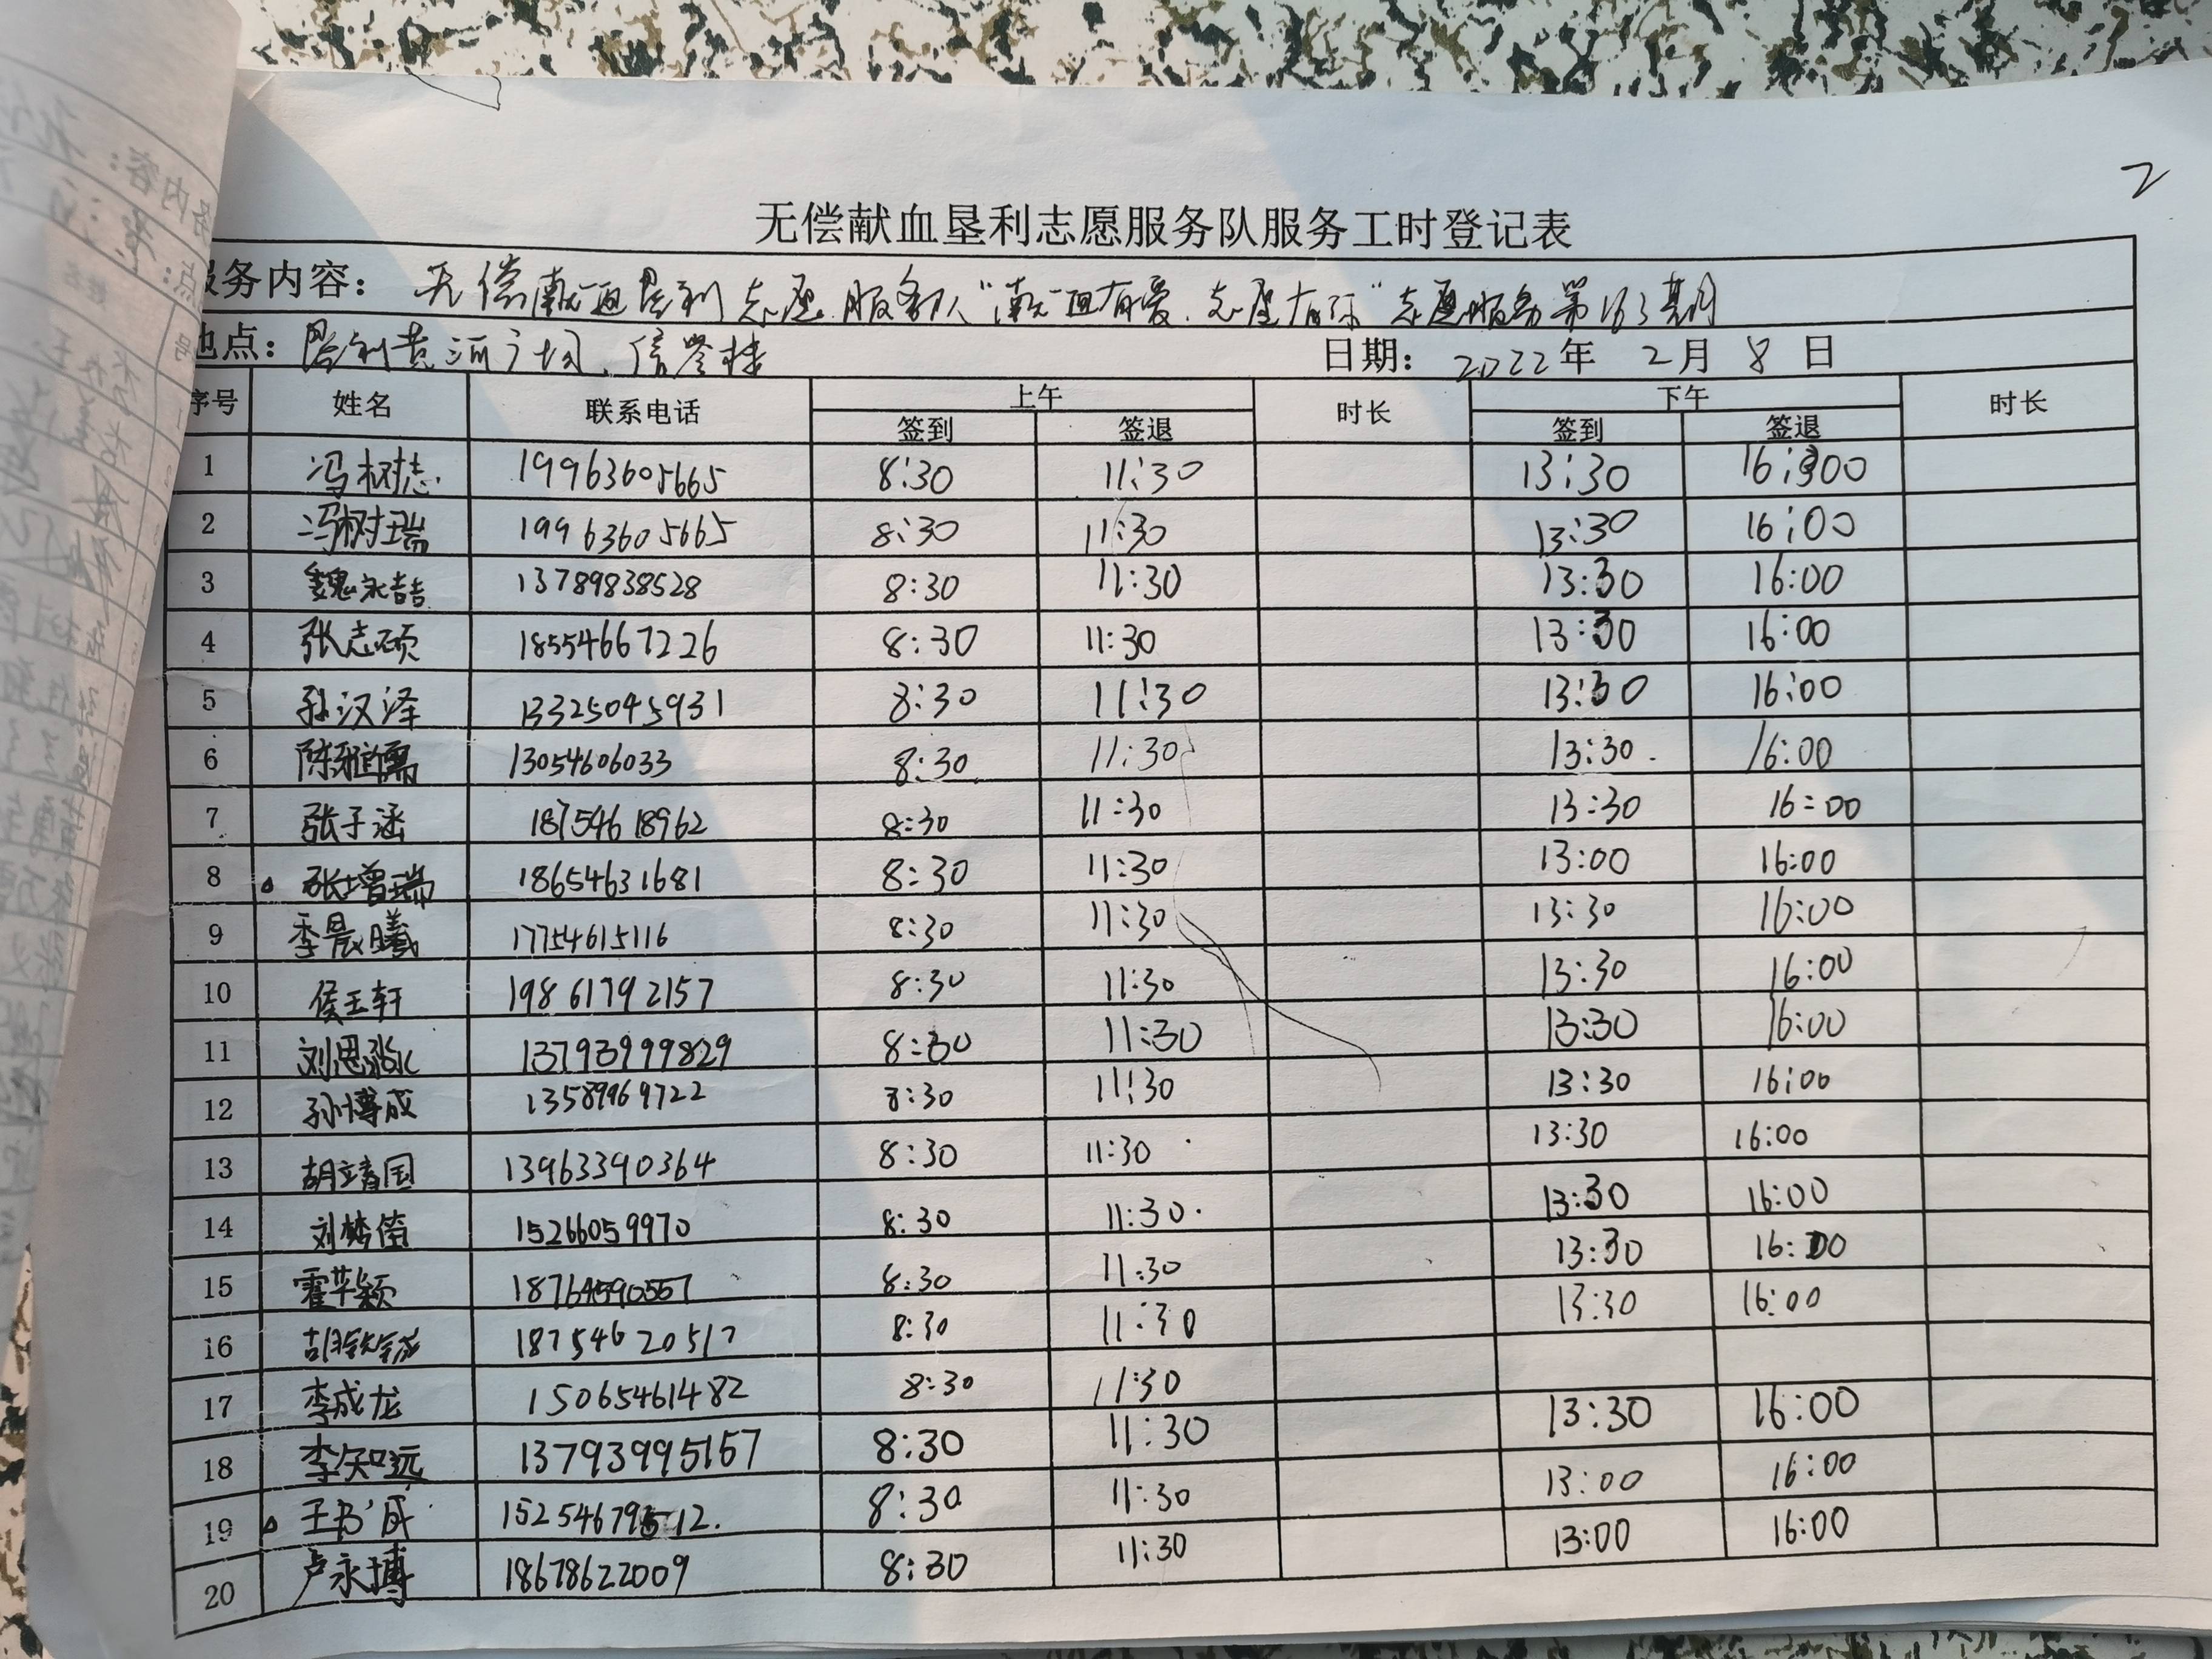 2
无偿献血垦利志愿服务队服务工时登记表
服务内容： 无偿献血垦利志愿服务队"献血有爱.志愿有你"志愿服务第163期
地点： 垦利黄河广场、信誉楼 日期： 2022年 2月 8日
序号 姓名 联系电话 上午 时长 下午 时长
签到 签退 签到 签退
1 冯树志 19963605665 8:30 11:30 13:30 16:00
2 冯树瑞 19963605665 8:30 11:30 13:30 16:00
3 魏永喆 13789838528 8:30 11:30 13:30 16:00
4 张志硕 18554667226 8:30 11:30 13:30 16:00
5 孙汉泽 13325045931 8:30 11:30 13:30 16:00
6 陈雅儒 13054606033 8:30 11:30 13:30 16:00
7 张子涵 18754618962 8:30 11:30 13:30 16:00
8 张增瑞 18654631681 8:30 11:30 13:00 16:00
9 季晨曦 17754615116 8:30 11:30 13:30 16:00
10 侯玉轩 19861792157 8:30 11:30 13:30 16:00
11 刘思淼 13793999829 8:30 11:30 13:30 16:00
12 孙博成 13589969722 8:30 11:30 13:30 16:00
13 胡靖国 13963390364 8:30 11:30 13:30 16:00
14 刘梦倩 15266059970 8:30 11:30 13:30 16:00
15 霍苹颖 18764590557 8:30 11:30 13:30 16:00
16 18754620517 8:30 11:30 13:30 16:00
17 李成龙 15065461482 8:30 11:30
18 李知远 13793995157 8:30 11:30 13:30 16:00
19 15254679512. 8:30 11:30 13:00 16:00
20 卢永博 18678622009 8:30 11:30 13:00 16:00